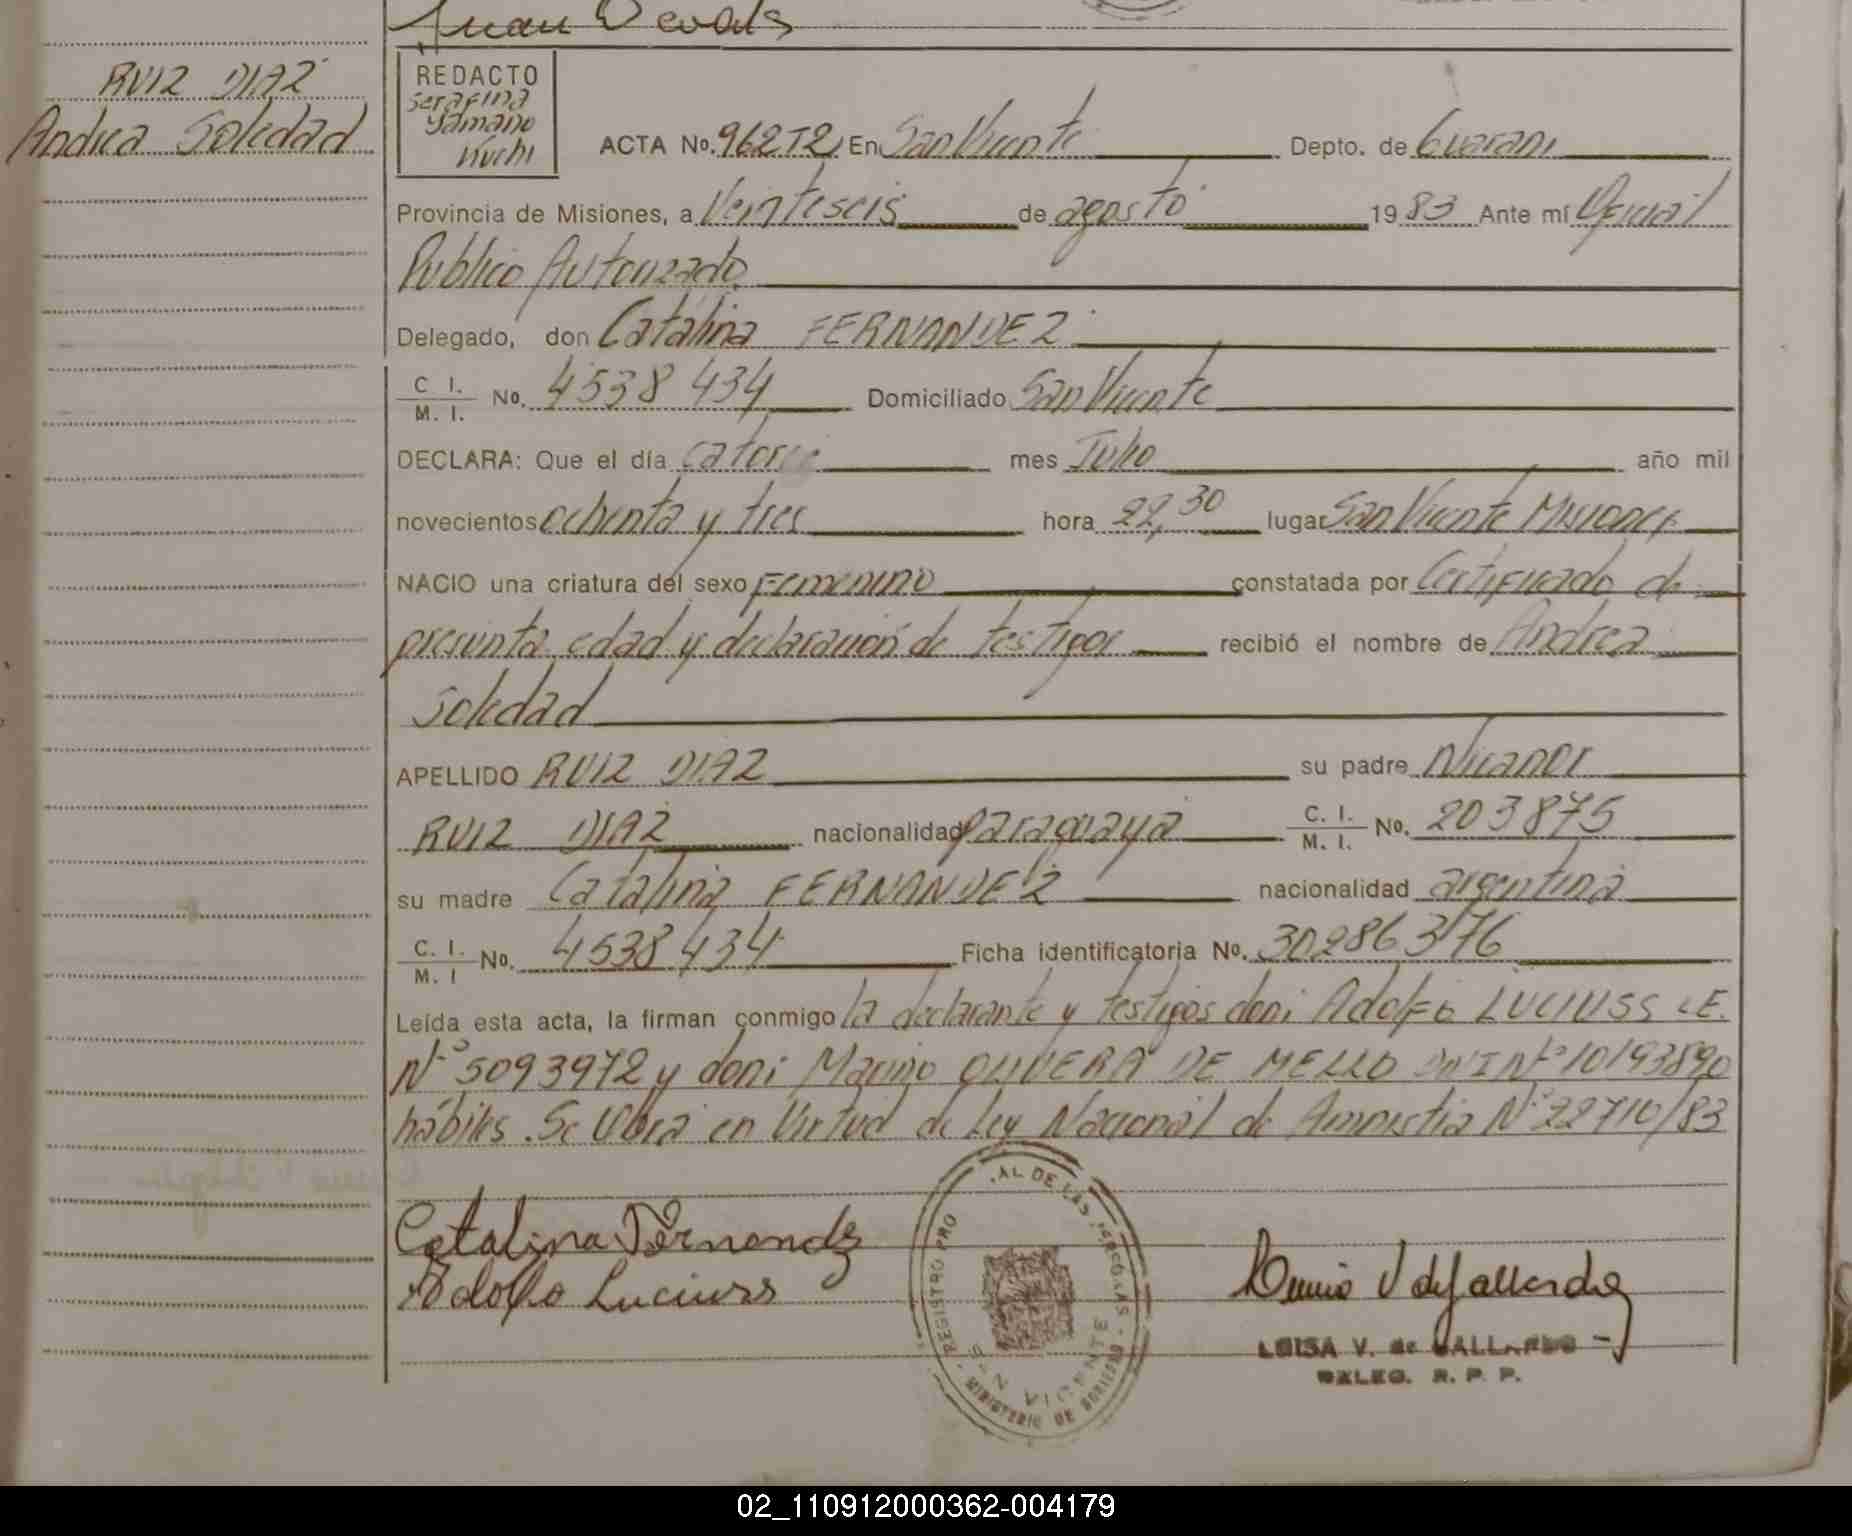 Juan
RUIZ DIAZ
Andrea Soledad
REDACTO
Serafina
Yamano
Kuchi
ACTA No. 962T2 En San Vicente Depto. de Guarani
Provincia de Misiones, a Veintiseis de agosto 1983 Ante mí Oficial
Publico Autorizado
Delegado, don Catalina FERNANDEZ
C. I.
M. I. No. 4538434 Domiciliado San Vicente
DECLARA: Que el día catorce mes Julio año mil
novecientos ochenta y tres hora 22,30 lugar San Vicente Misiones
NACIO una criatura del sexo Femenino constatada por Certificado de
presunta edad y declaración de testigos recibió el nombre de Andrea
Soledad
APELLIDO RUIZ DIAZ su padre Nicanor
RUIZ DIAZ nacionalidad paraguaya C. I.
M. I. No. 203875
su madre Catalina FERNANDEZ nacionalidad argentina
C. I.
M. I No. 4538434 Ficha identificatoria No. 30286376
Leída esta acta, la firman conmigo la declarante y testigos don: Adolfo LUCIUSS LE.
Nº 5093972 y don: Marino OLIVERA DE MELLO DNI Nº 10193890
hábiles. Se Obra en Virtud de Ley Nacional de Amnistia Nº 22710/83
Catalina Fernandez
Adolfo Luciuss
REGISTRO PRO AL DE LAS PERSONAS - MINISTERIO DE GOBIERNO
SAN VICENTE
LUISA V. de GALLARDO
DELEG. R. P. P.
02_110912000362-004179